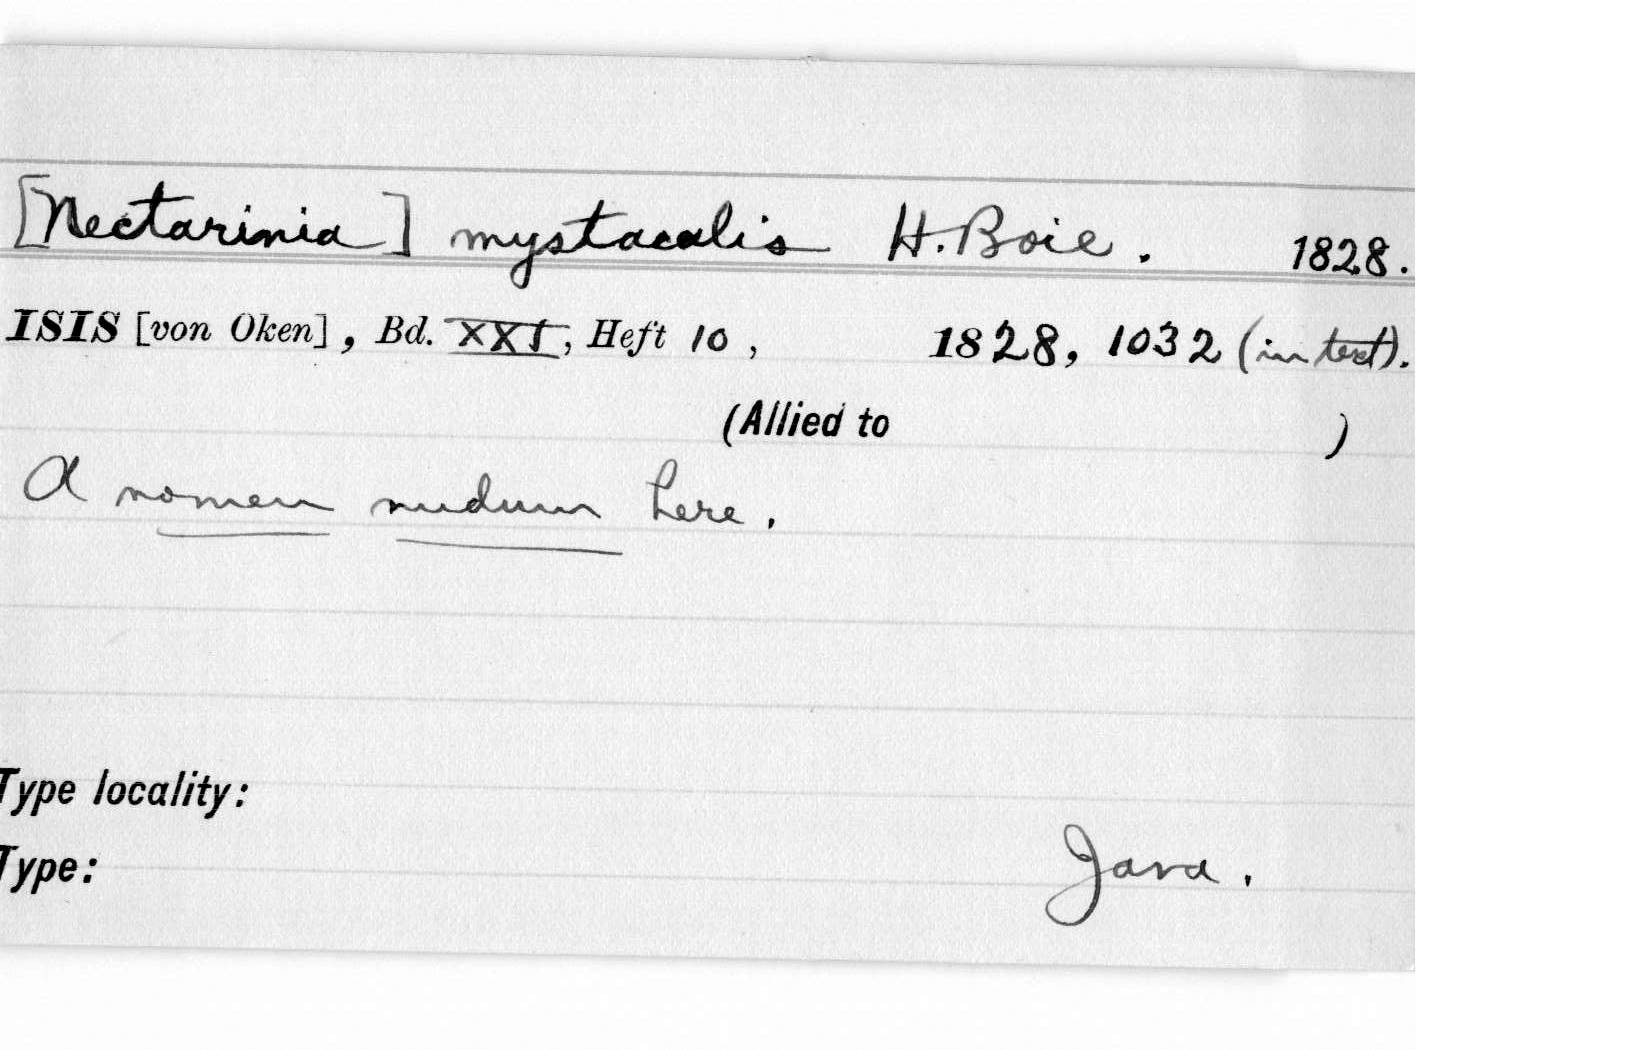 [Nectarinia] mystacalis H. Boie. 1828.
ISIS [von Oken], Bd. XXI, Heft 10, 1828, 1032 (in text).
(Allied to )
A nomen nudum here.
Type locality:
Type: Java.